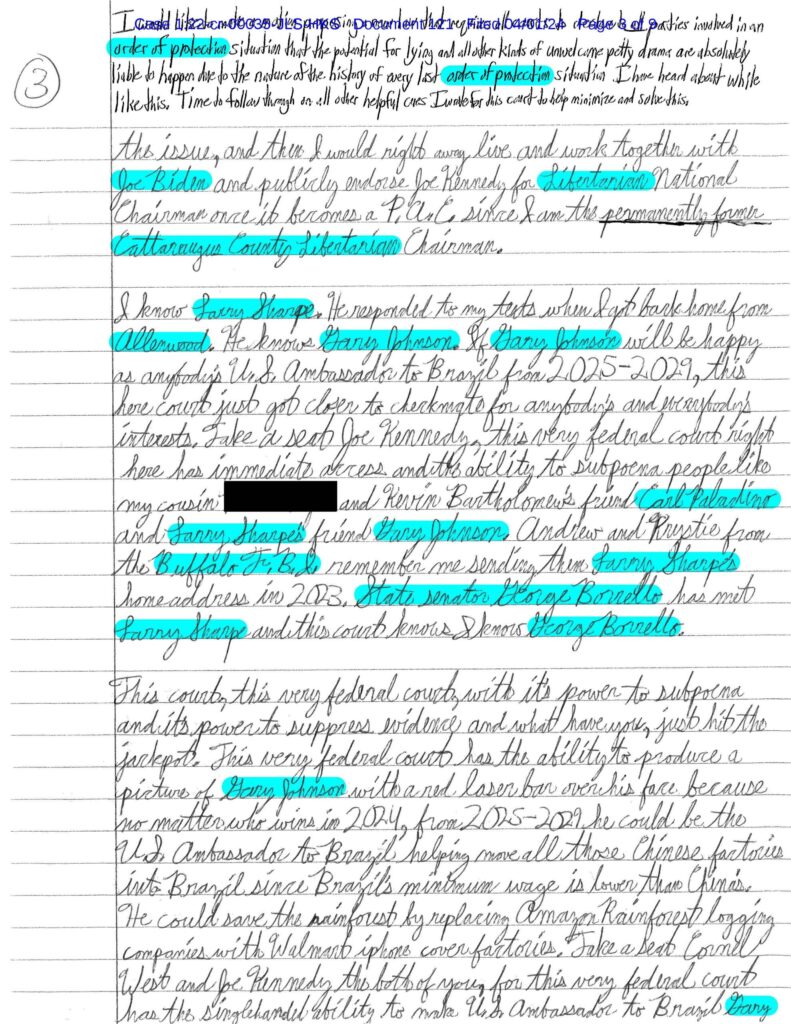 Case 1:22-cr-00035-JLS-HKS Document 121 Filed 04/01/24 Page 3 of 9
I would like parties involved in an
order of protection situation that the potential for lying and all other kinds of unwelcome petty drama are absolutely
liable to happen due to the nature of the history of every last order of protection situation I have heard about while
like this. Time to follow through on all other helpful cues I wrote for this court to help minimize and solve this.
3
the issue, and then I would right away live and work together with
Joe Biden and publicly endorse Joe Kennedy for Libertarian National
Chairman once it becomes a P.A.C. since I am the permanently former
Cattaraugus County Libertarian Chairman.
I know Larry Sharpe. He responded to my texts when I got back home from
Allenwood. He knows Gary Johnson. If Gary Johnson will be happy
as anybody's U.S. Ambassador to Brazil from 2025-2029, this
here court just got closer to checkmate for anybody's and everybody's
interests. Take a seat Joe Kennedy, this very federal court right
here has immediate access and the ability to subpoena people like
my cousin and Kevin Bartholomew's friend Carl Paladino
and Larry Sharpe's friend Gary Johnson. Andrew and Krystie from
the Buffalo F.B.I. remember me sending them Larry Sharpe's
home address in 2023. State senator George Borrello has met
Larry Sharpe and this court knows I know George Borrello.
This court, this very federal court, with it's power to subpoena
and it's power to suppress evidence and what have you, just hit the
jackpot. This very federal court has the ability to produce a
picture of Gary Johnson with a red laser bar over his face because
no matter who wins in 2024, from 2025-2029 he could be the
U.S. Ambassador to Brazil helping move all those Chinese factories
into Brazil since Brazil's minimum wage is lower than China's.
He could save the rainforest by replacing Amazon Rainforest logging
companies with Walmart iphone cover factories. Take a seat Cornel
West and Joe Kennedy the both of you, for this very federal court
has the singlehanded ability to make U.S. Ambassador to Brazil Gary